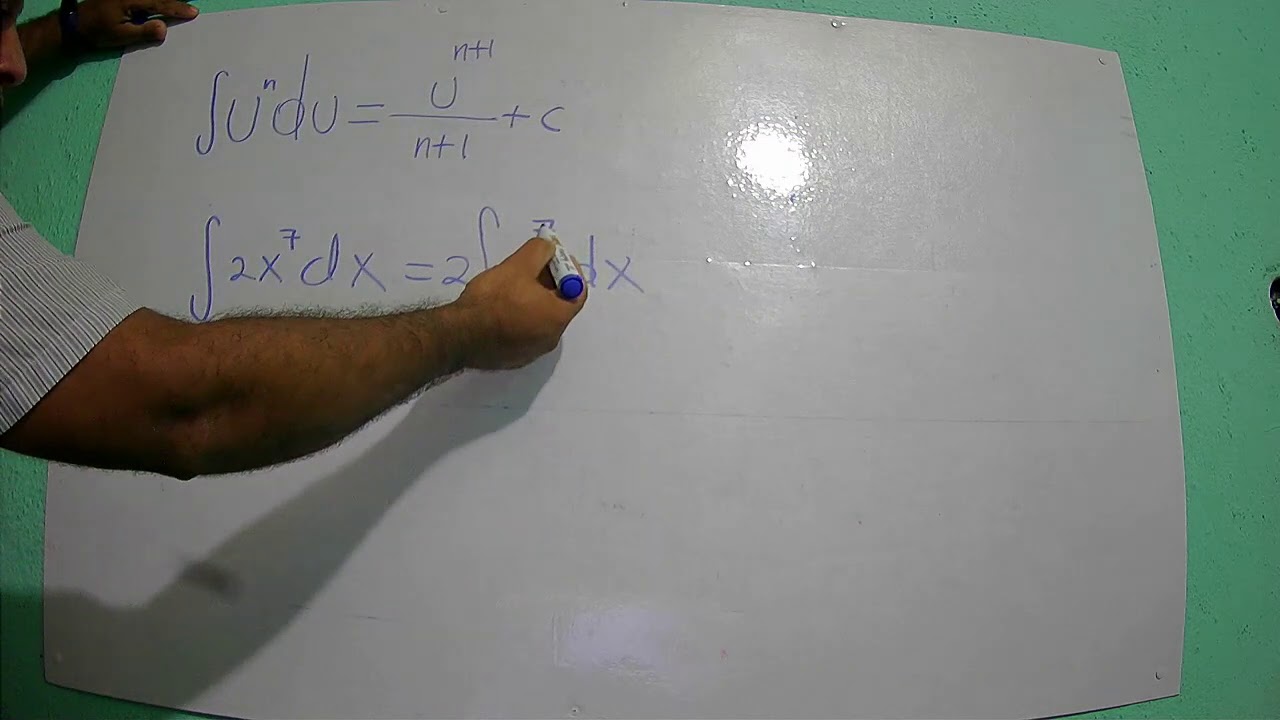 ∫Uⁿdu = Uⁿ⁺¹/n+1 + c
∫2x⁷dx = 2∫ ⁷dx